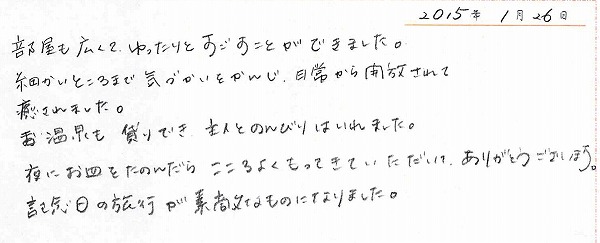 2015年 1月 26日
部屋も広くて、ゆったりとすごすことができました。
細かいところまで気づかいをかんじ、日常から開放されて
癒されました。
お温泉も貸りでき、主人とのんびりはいれました。
夜にお皿をたのんだら こころよくもってきていただいて、ありがとうございます。
記念日の旅行が素敵なものになりました。